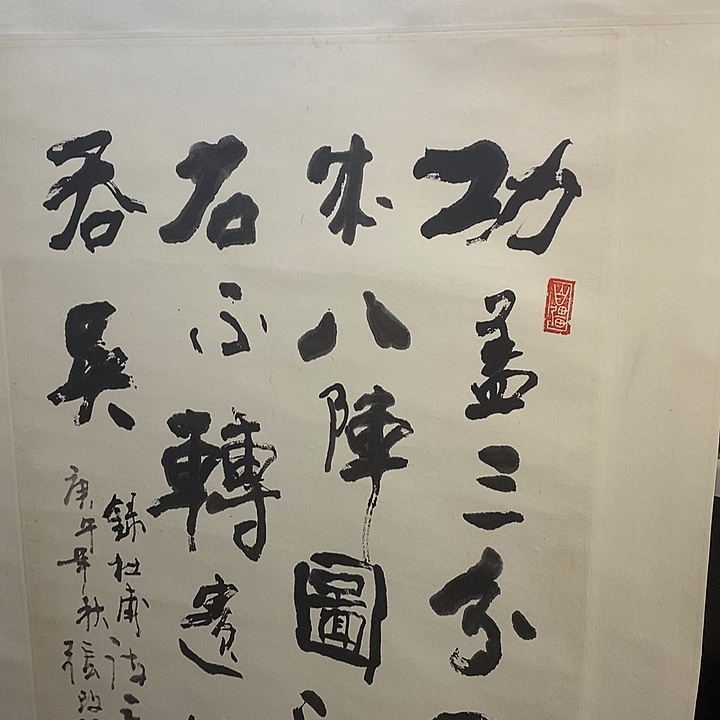 功蓋三分
成八陣圖
石不轉遺
吞吳
錄杜甫詩
庚午年秋張